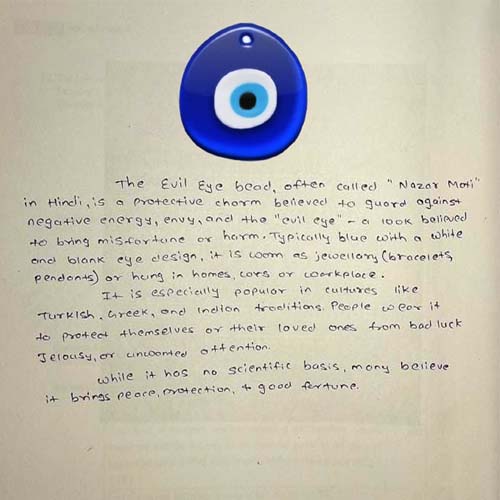 The Evil Eye bead, often called "Nazar Moti"
in Hindi, is a protective charm believed to guard against
negative energy, envy, and the "evil eye" - a look believed
to bring misfortune or harm. Typically blue with a white
and blank eye design, it is worn as jewellory (bracelets,
pendants) or hung in homes, cars or workplace.
It is especially popular in cultures like
Turkish, Greek, and Indian traditions. People wear it
to protect themselves or their loved ones from bad luck
Jelousy, or unwanted attention.
While it has no scientific basis, many believe
it brings peace, protection, & good fortune.